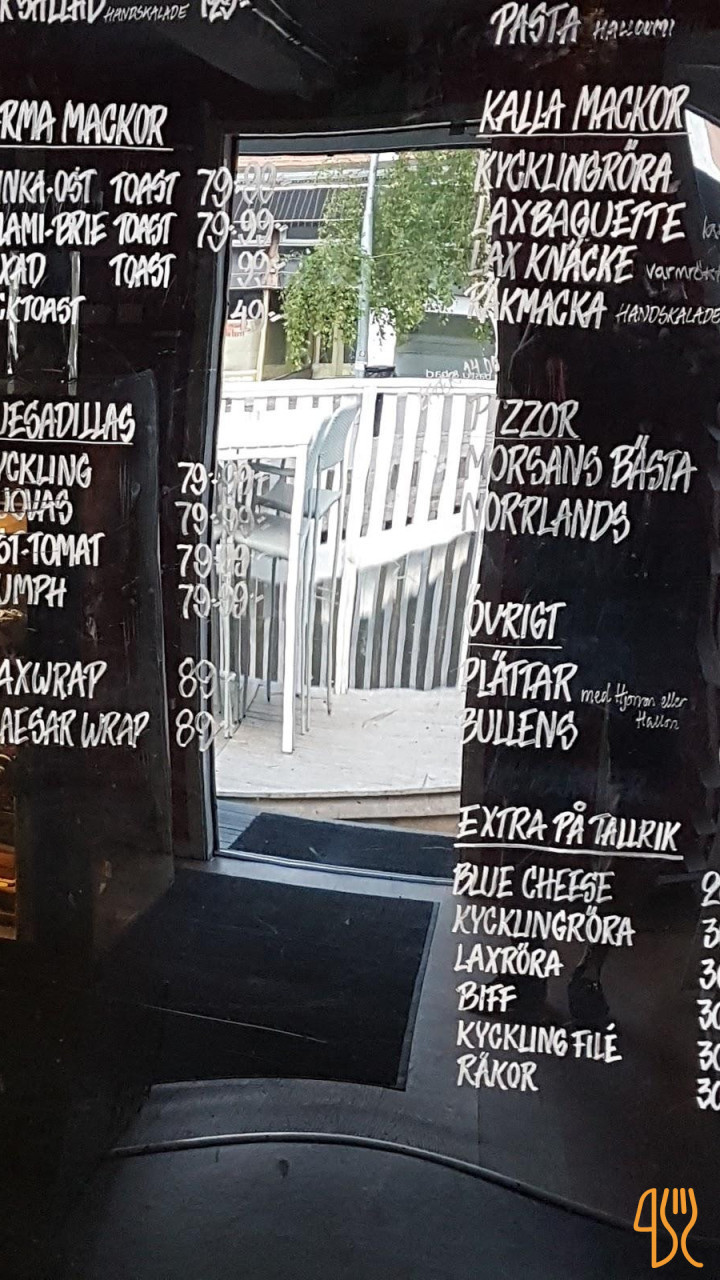 SALLAD HANDSKALADE 129-
RMA MACKOR
INKA-OST TOAST 79-99-
LAMI-BRIE TOAST 79-99-
XAD TOAST 99-
CKTOAST 49-
UESADILLAS
YCKLING 79-99-
JOVAS 79-99-
ST-TOMAT 79-99-
UMPH 79-99-
AXWRAP 89-
AESAR WRAP 89-
PASTA HALLOUMI
KALLA MACKOR
KYCKLINGRÖRA
LAXBAGUETTE
LAX KNÄCKE varmrökt
RÄKMACKA HANDSKALADE
PIZZOR
MORSANS BÄSTA
NORRLANDS
ÖVRIGT
PLÄTTAR med Hjorron eller
Hallon
BULLENS
EXTRA PÅ TALLRIK
BLUE CHEESE 2
KYCKLINGRÖRA 3
LAXRÖRA 30
BIFF 30
KYCKLING FILÉ 30
RÄKOR 30